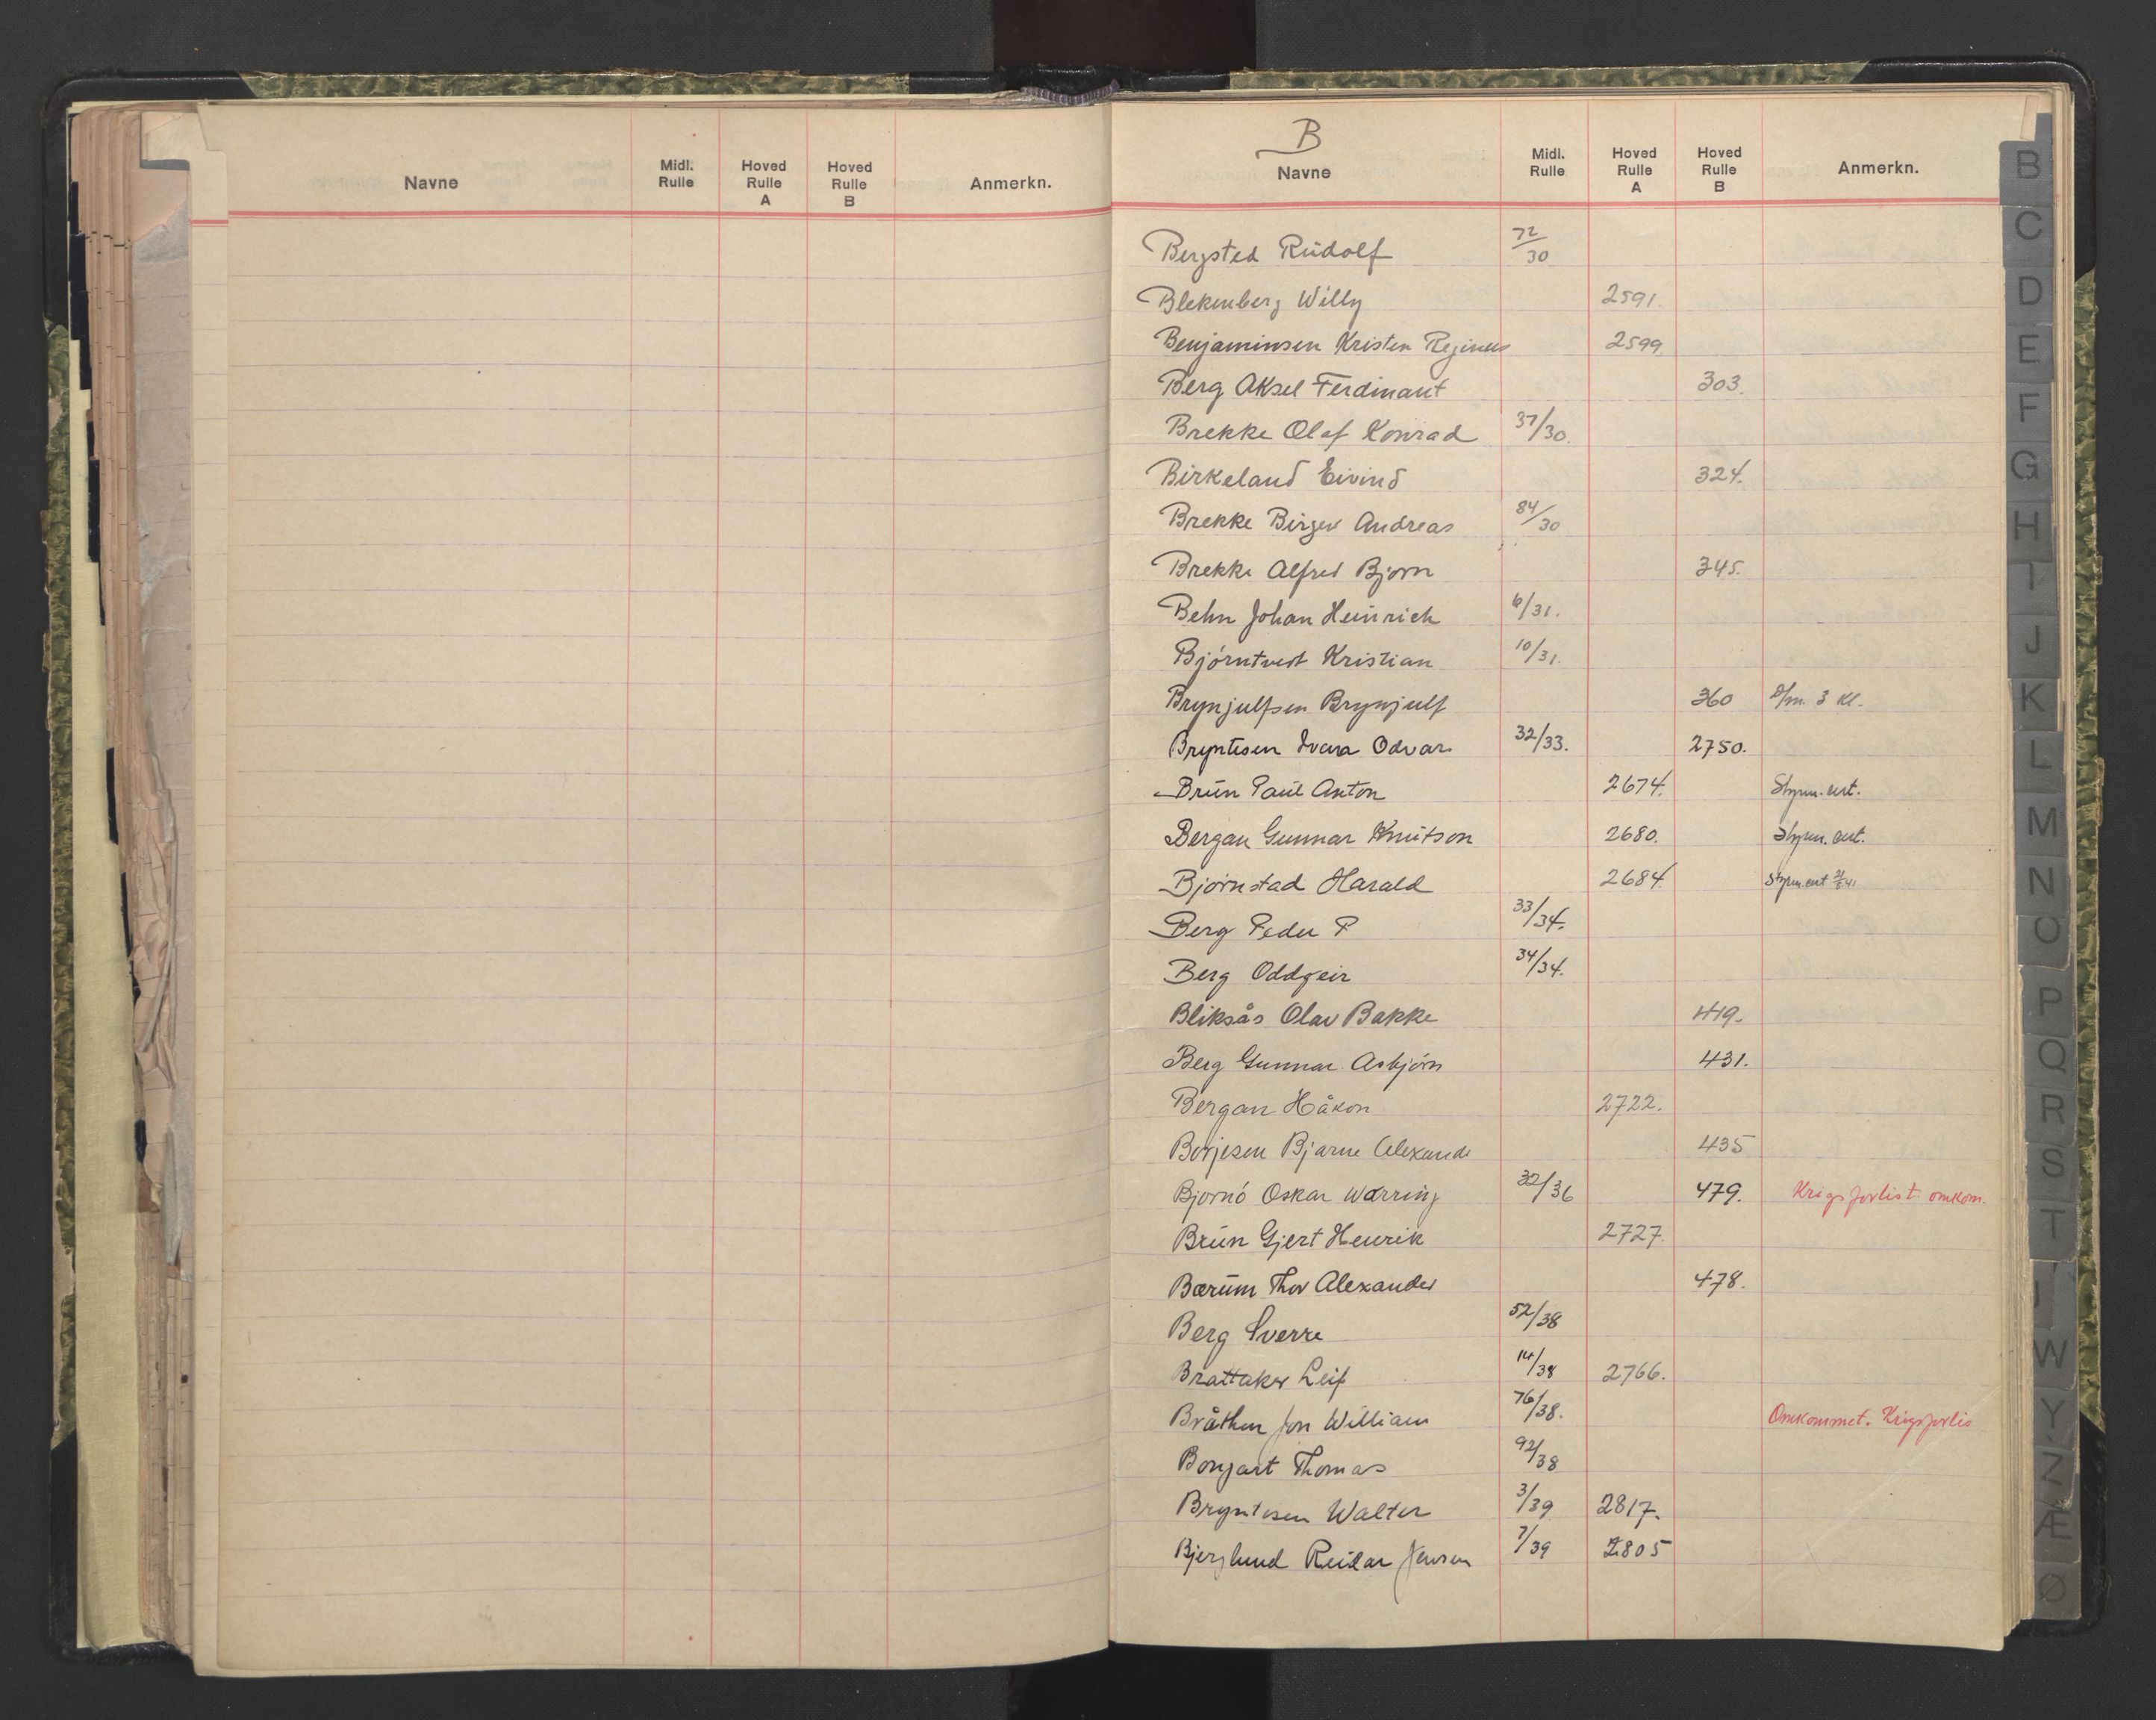 Navne Midl. Rulle Hoved Rulle A Hoved Rulle B Anmerkn.
B
Navne Midl. Rulle Hoved Rulle A Hoved Rulle B Anmerkn.
Bergsted Rudolf 72/30
Blekenberg Willy 2591.
Benjaminsen Kristen Reginus 2599
Berg Aksel Ferdinant 303.
Brekke Olaf Konrad 37/30.
Birkeland Eivind 324.
Brekke Birger Andreas 84/30
Brekke Alfred Bjorn 345.
Behn Johan Heinrich 6/31.
Bjórntvedt Kristian 10/31.
Brynjulfsen Brynjulf 360 3 Kl.
Bryntesen Ivar Odvar 32/33. 2750.
Brun Paul Anton 2674. Styrm. cert.
Bergan Gunnar Knutson 2680. Styrm. cert.
Bjørnstad Harald 2684 Styrm. cert
Berg Peder P 33/34.
Berg Oddgeir 34/34.
Bliksås Olav Bakke 419.
Berg Gunnar Asbjørn 431.
Bergan Håkon 2722.
Borjesen Bjarne Alexand 435
Bjornó Oskar Wærring 32/36 479. Krigsforlist omkom.
Brun Gjert Henrik 2727.
Bærum Thor Alexander 478.
Berg Sverre 52/38
Brattaker Leif 14/38 2766.
Bråthen Jon William 76/38. Omkommet. Krigsforlis
Bongart Thomas 92/38
Bryntesen Walter 3/39 2817.
Bjerglund Reidar Jensen 7/39 2805
B
C
D
E
F
G
H
I
J
K
L
M
N
O
P
Q
R
S
T
W
Y
Z
Æ
Ø